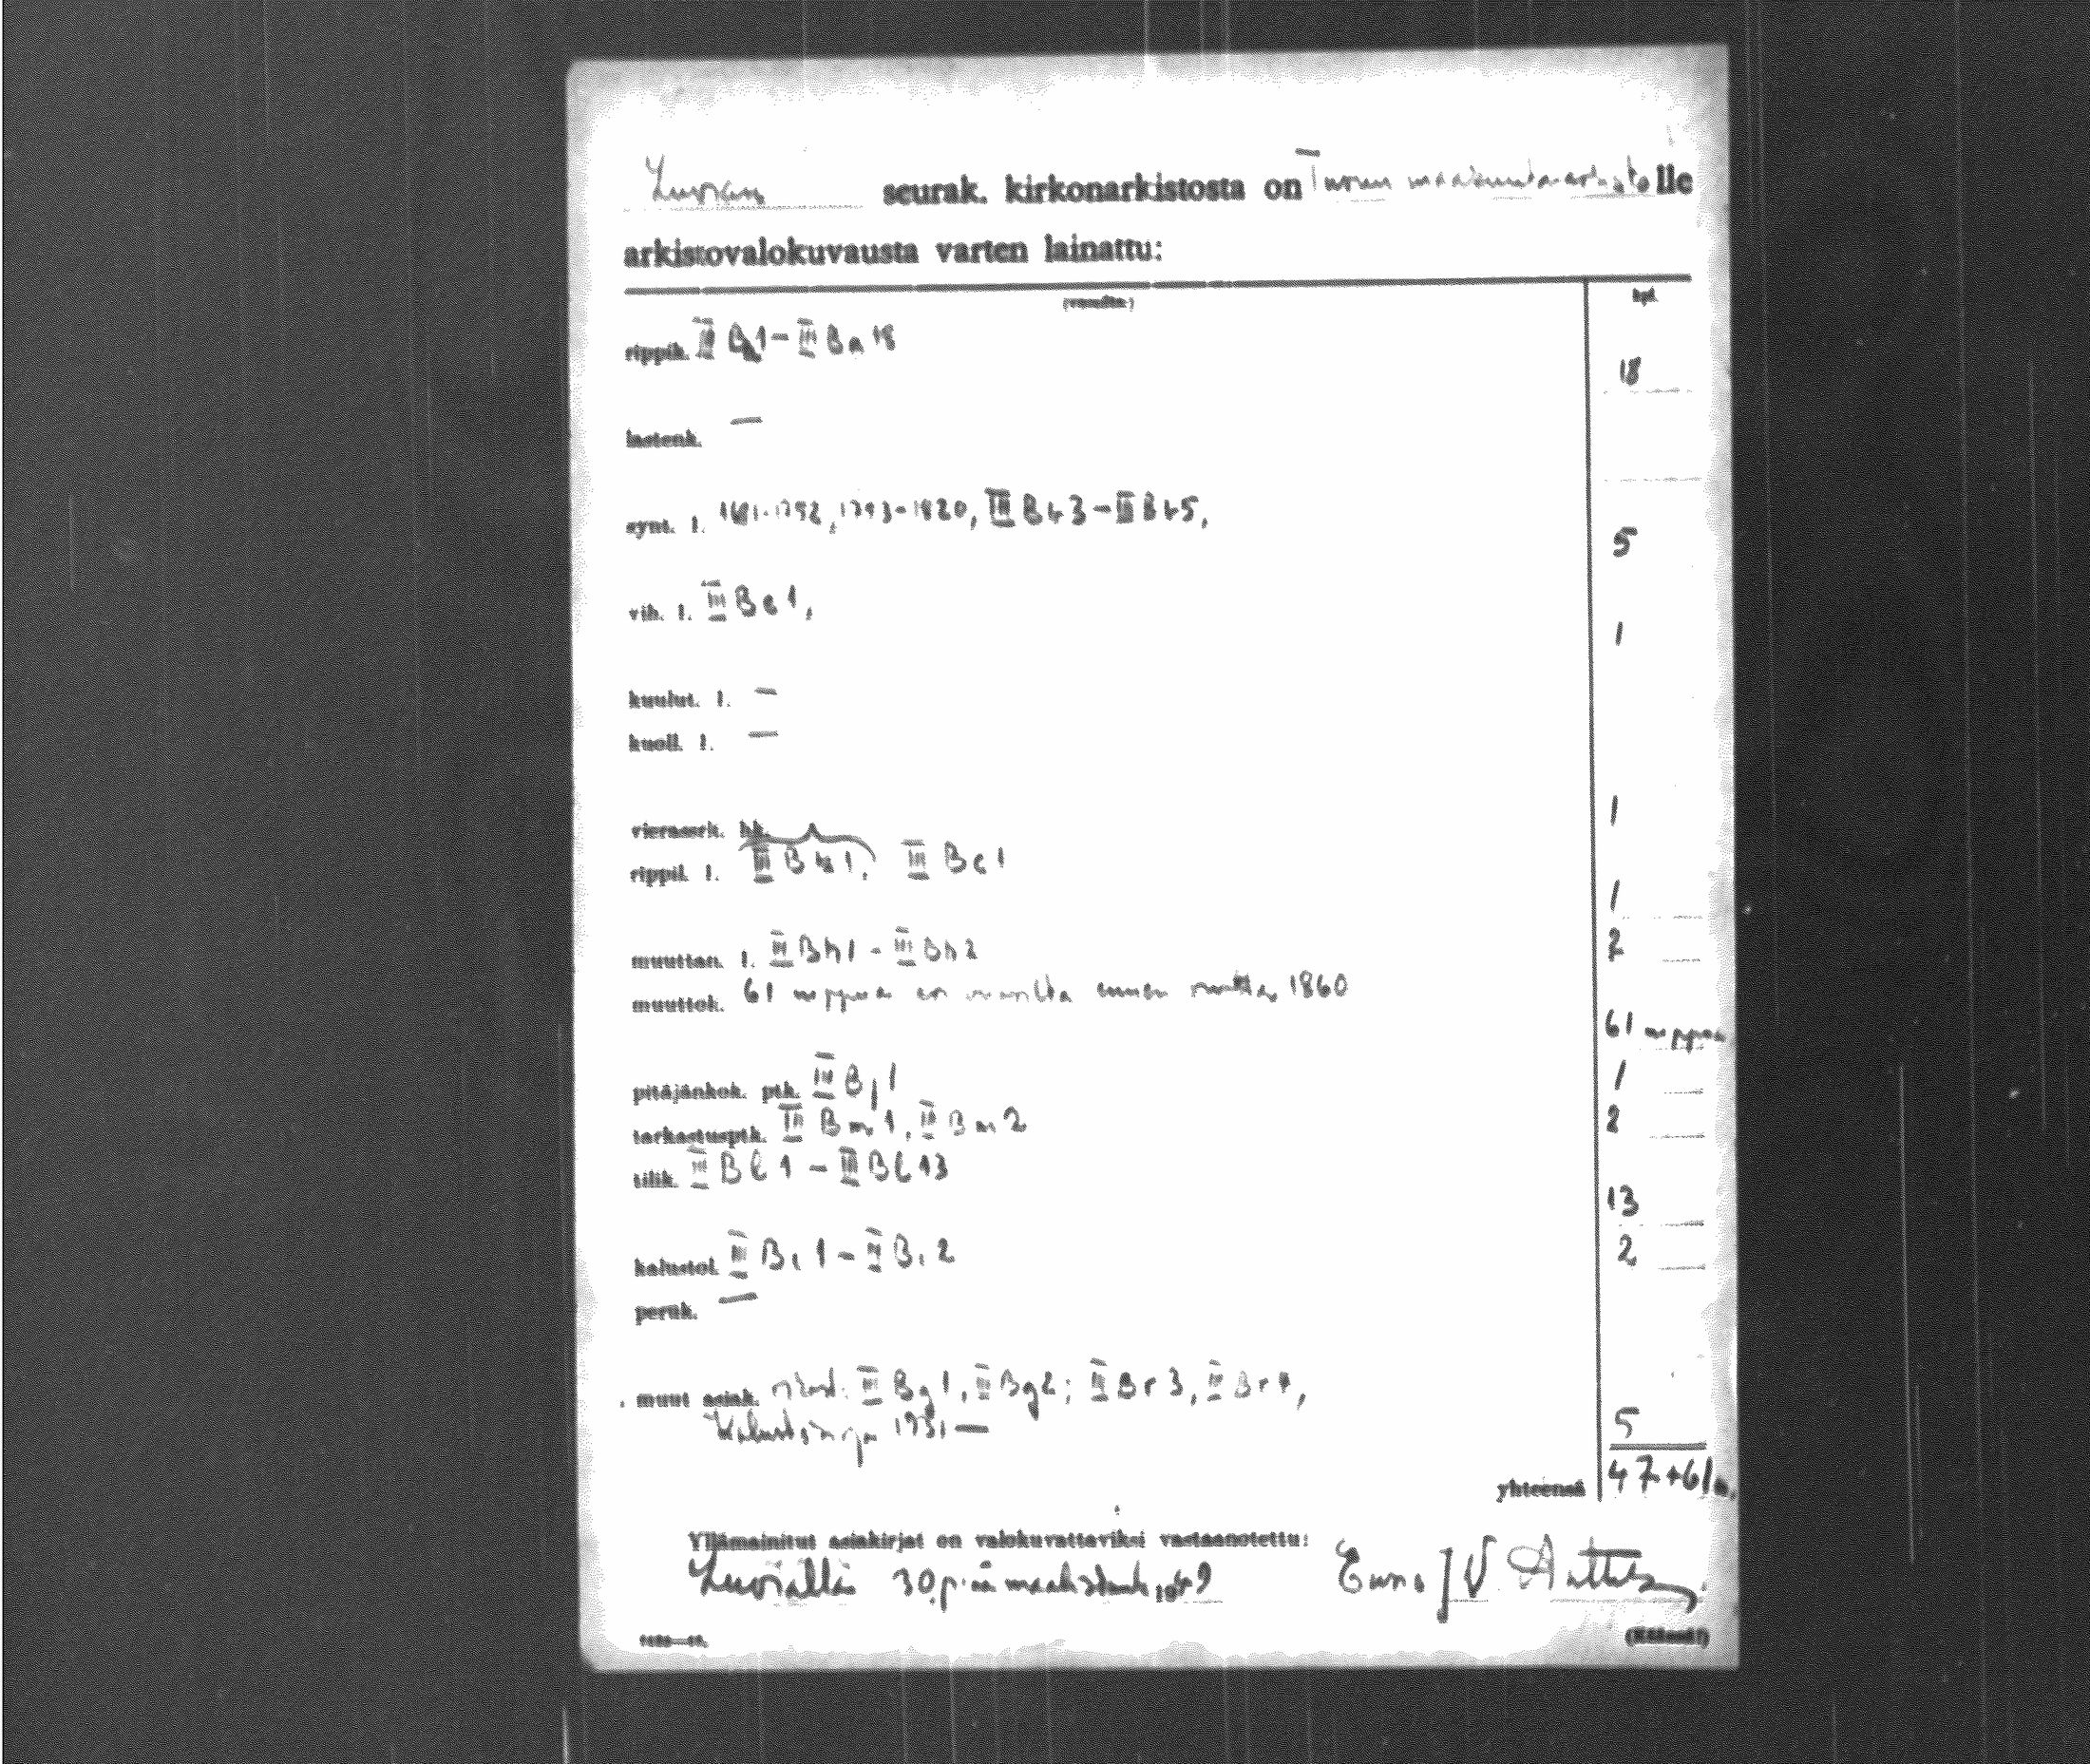 Luvian seurak. kirkonarkistosta on Turun maakunta-arkistolle
arkistovalokuvausta varten lainattu:
(vuosilta:) kpl.
rippik. III Ba1 – III Ba 18 18
lastenk. —
synt. l. 1681-1752, 1793-1820, III Bb3 – III Bb5, 5
vih. l. III Be1, 1
kuulut. l. —
kuoll. l. —
vierassrk. hk. 1
rippil. l. III Bk1, III Bc1 1
muuttan. l. III Bh1 - III Bh2 2
muuttok. 61 nippua eri vuosilta ennen vuotta 1860 61 nippua
pitäjänkok. ptk. III Bj1 1
tarkastusptk. III Bm1, III Bm2 2
tilik. III Bl1 – III Bl13 13
kalustol. III Bi1 – III Bi2 2
peruk. —
muut asiak. III Bg1, III Bg2; III Br3, III Br4,
1731 — 5
yhteensä 47+61n.
Yllämainitut asiakirjat on valokuvattaviksi vastaanotettu:
Luvialla 30 p:nä maalisk. 1949 Eino J V